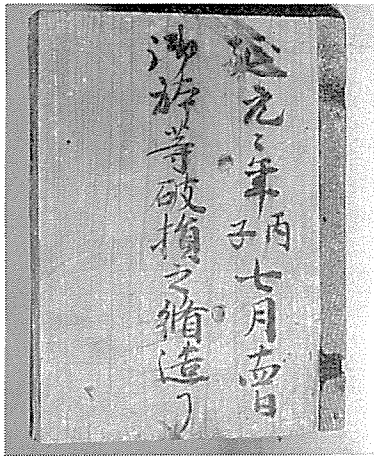 延元々年丙子七月日
御等破損之脩造了